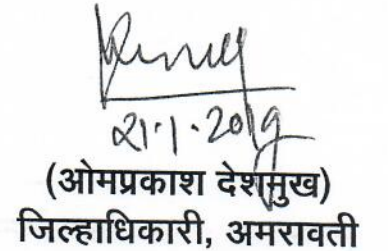 21.1.2019
(ओमप्रकाश देशमुख)
जिल्हाधिकारी, अमरावती